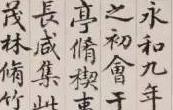 永和九年
之初會于
亭脩禊事
長咸集此
茂林脩竹